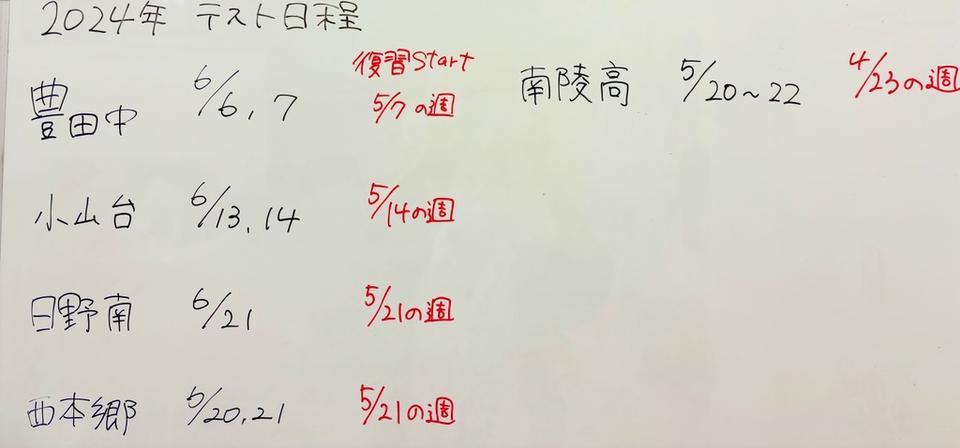 2024年 テスト日程
復習Start
豊田中 6/6, 7 5/7の週
南陵高 5/20~22 4/23の週
小山台 6/13, 14 5/14の週
日野南 6/21 5/21の週
西本郷 6/20,21 5/21の週